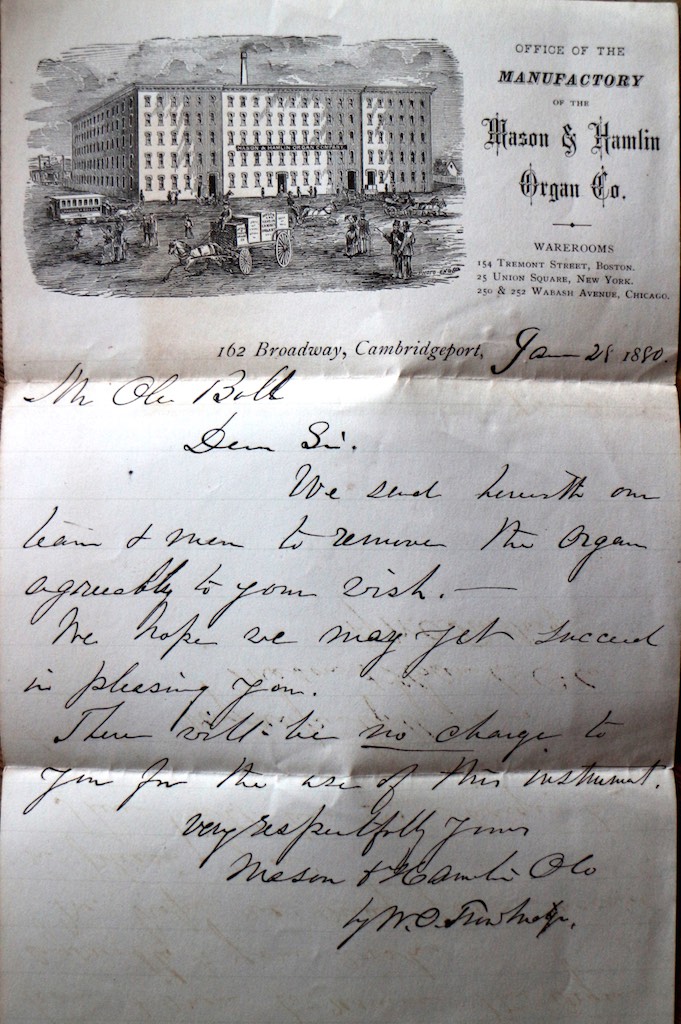 OFFICE OF THE
MANUFACTORY
OF THE
Mason & Hamlin
Organ Co.
WAREROOMS
154 TREMONT STREET, BOSTON.
25 UNION SQUARE, NEW YORK.
250 & 252 WABASH AVENUE, CHICAGO.
MASON & HAMLIN ORGAN COMPANY.
162 Broadway, Cambridgeport, Jan 28 1880.
Mr Ole Bull
Dear Sir.
We send herewith our
team & men to remove the organ
agreeably to your wish. —
We hope we may yet succeed
in pleasing you.
There will be no charge to
you for the use of this instrument.
Very respectfully yours
Mason & Hamlin O Co
by W. O.